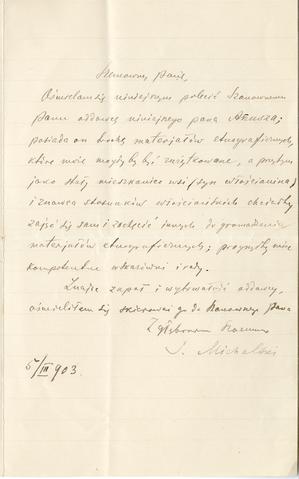 Szanowny Panie,
Ośmielam się niniejszym polecić Szanownemu
Panu oddawcę niniejszego pana
posiada on trochę materjałów etnograficznych,
które może mogłyby być zużytkowane, a przytem
jako stały mieszkaniec wsi (syn włościanina)
i znawca stosunków włościańskich chciałby
zająć się sam i zachęcić innych do gromadzenia
materjałów etnograficznych;
kompetentne wskazówki i rady.
Znając zapał i wytrwałość oddawcy,
ośmieliłem się skierować go do Szanownego Pana
Z głębokim
S. Michalski
5/III 903.